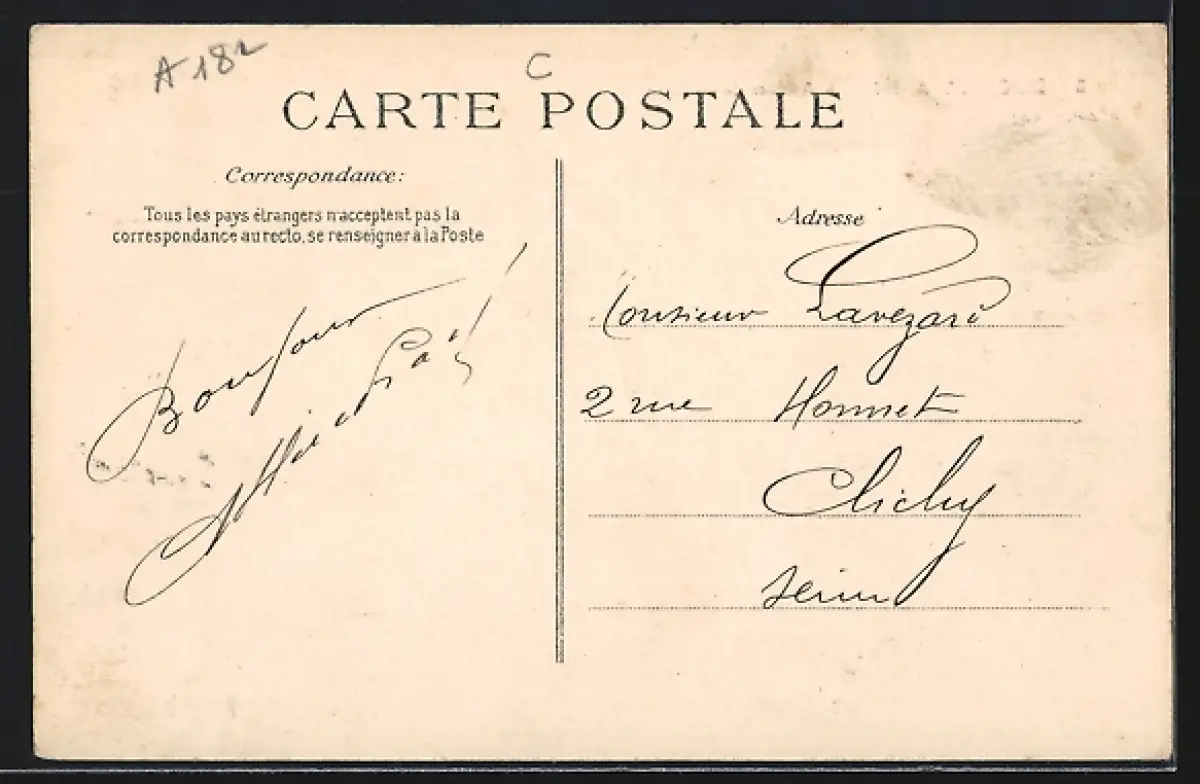 A 182
C
CARTE POSTALE
Correspondance:
Tous les pays étrangers n'acceptent pas la
correspondance au recto, se renseigner à la Poste
Bonjour
Adresse
Monsieur Lavezard
2 rue Honnet
Clichy
Seine